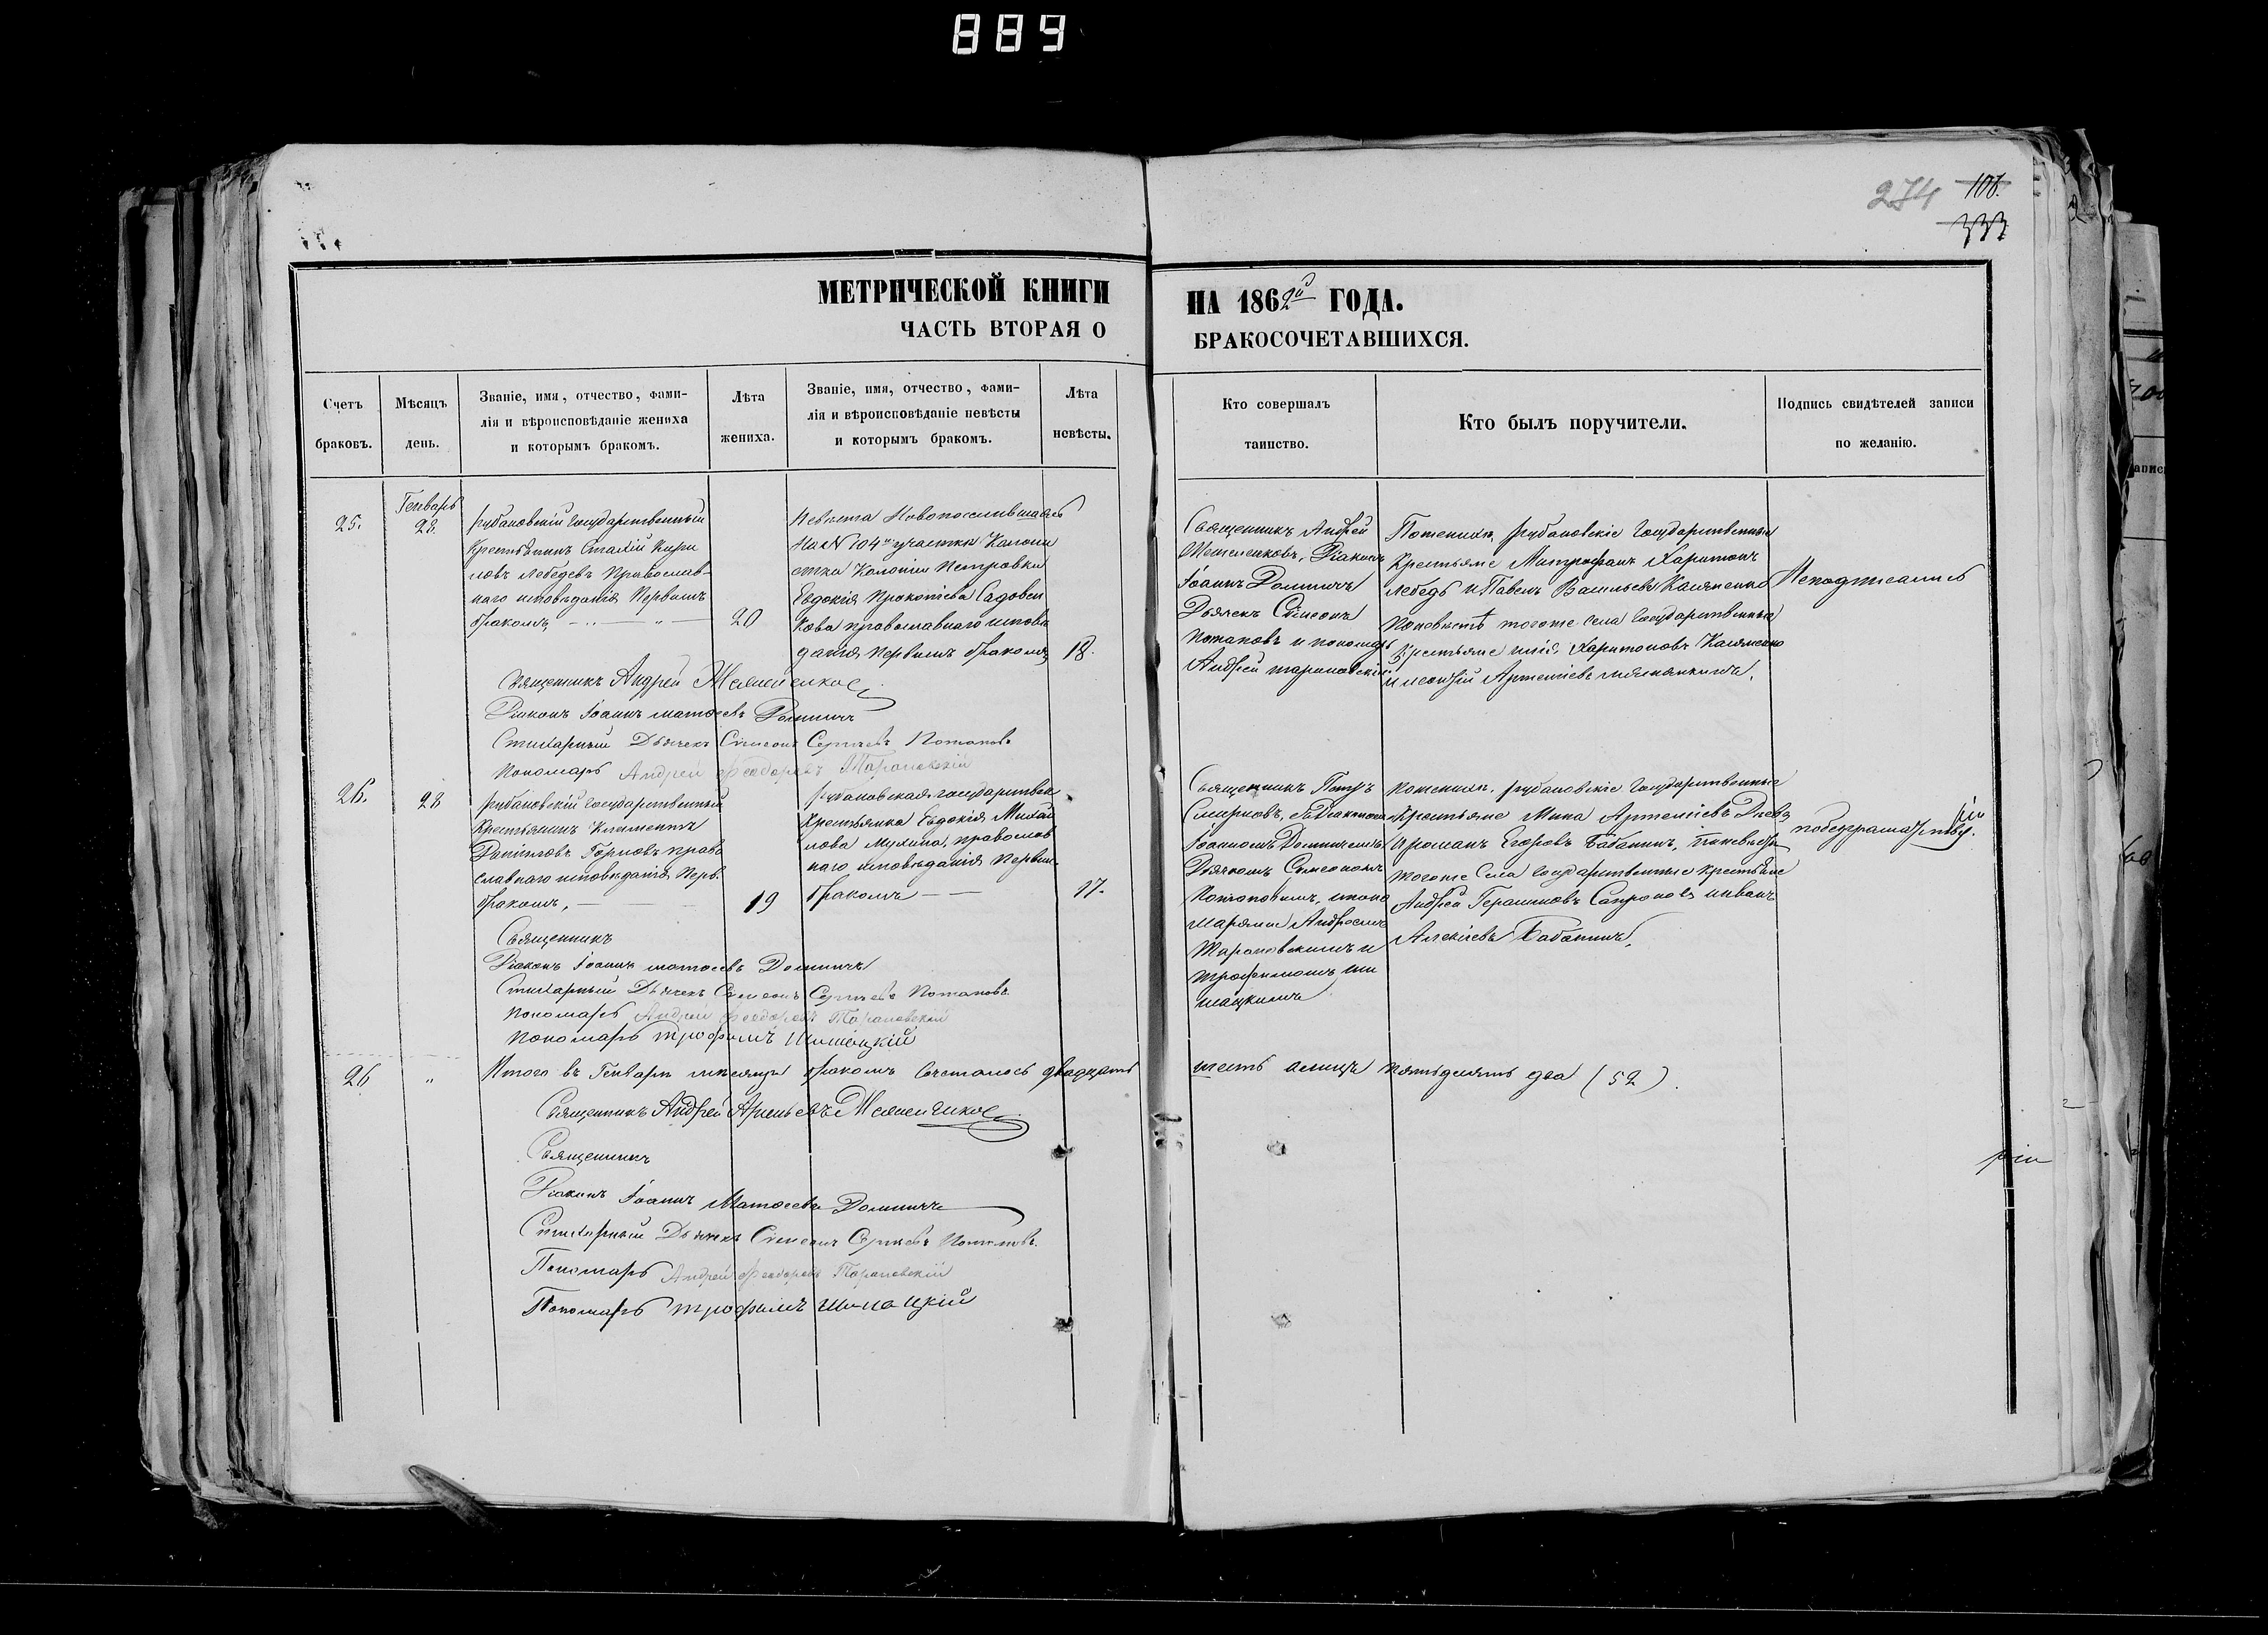 889
274 108.
333
МЕТРИЧЕСКОЙ КНИГИ НА 1862й ГОДА.
ЧАСТЬ ВТОРАЯ О БРАКОСОЧЕТАВШИХСЯ.
Счетъ браковъ.
Мѣсяцъ день.
Званіе, имя, отчество, фами-
лія и вѣроисповѣданіе жениха
и которымъ бракомъ.
Лѣта жениха.
Званіе, имя, отчество, фами-
лія и вѣроисповѣданіе невѣсты
и которымъ бракомъ.
Лѣта невѣсты.
Кто совершалъ таинство.
Кто былъ поручители.
Подпись свидѣтелей записи
по желанію.
25.
Генварь
28.
рубановскій государственный
Крестьянинъ Кири
ловъ Лебедевъ Православ-
наго исповѣданія Первымъ
бракомъ,
20
Невѣста Новопоселившаяся
На № 104м участкѣ Колони
стка Колоніи Петровки
Евдокія Прокопіева Садовни
кова православнаго исповѣ
данія, первымъ бракомъ,
18.
Священникъ Андрей
Діаконъ
Іоаннъ Долиничъ
Дьячекъ Сімеонъ
Потаповъ и пономарь
Андрей Тарановскій
По женихѣ, рубановскіе государственные
Крестьяне Митрофанъ Харитоновъ
Лебедь и Павелъ Васильевъ Касяненко
По невѣстѣ тогоже села государственные
Крестьяне Харитоновъ Касяненко
и Артеміевъ
Неподписались
Священникъ Андрей
Діаконъ Іоаннъ Матѳеевъ Долиничъ
Стихарный Дьячекъ Сімеонъ Сергѣевъ Потаповъ
Пономарь Андрей Феодоровъ Тарановскій
26.
28
рубановскій государственный
Крестьянинъ Климентъ
Даніиловъ Горловъ право
славнаго исповѣданія Перв.
бракомъ,
19
рубановская государствен
Крестьянка Евдокія Михаи
лова Мухина, православ
наго исповѣданія Первым
бракомъ
17.
Священникъ Петръ
Смирновъ, съ Діакономъ
Іоанномъ Долиничемъ
Дьячкомъ Симеономъ
Потаповымъ, и поно
марями Андреемъ
Тарановскимъ и
Трофимомъ Ши
мацкимъ
По женихѣ, рубановскіе государственные
Крестьяне Мина Артеміевъ
и романъ Егоровъ Бабанинъ, по невѣстѣ
тогоже Села государственные крестьяне
Андрей Герасимовъ Сапроновъ и иванъ
Алексѣевъ Бабанинъ,
Священникъ
Діаконъ Іоаннъ матѳеевъ Долиничъ
Стихарный Дьячекъ Сімеонъ Сергѣевъ Потаповъ
Пономарь Андрей Феодоровъ Тарановскій
Пономарь трофимъ Шимацкій
26
"
Итого въ Генварѣ мѣсяцѣ бракомъ сочеталось двадцать шесть а лицъ пятьдесятъ два (52).
Священникъ Андрей Арсеньевъ
Священникъ
Діаконъ Іоаннъ Матѳеевъ Долиничъ
Стихарный Дьячекъ Сімеонъ Сергѣевъ Потаповъ.
Пономарь Андрей Феодоровъ Тарановскій
Пономарь трофимъ Шимацкій